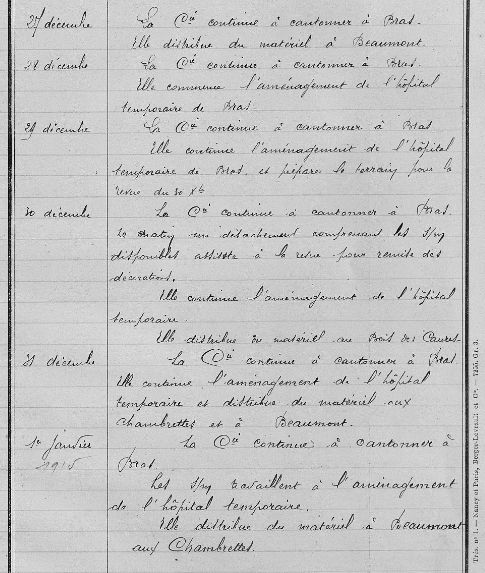 27 décembre La Cie continue à cantonner à Bras.
Elle distribue du matériel à Beaumont.
28 décembre La Cie continue à cantonner à Bras.
Elle commence l'aménagement de l'hôpital
temporaire de Bras
29 décembre La Cie continue à cantonner à Bras
Elle continue l'aménagement de l'hôpital
temporaire de Bras et prépare le terrain pour la
revue du 30 Xb
30 décembre La Cie continue à cantonner à Bras.
Le un détachement comprenant les S/ng
disponibles assiste à la revue pour remise des
décorations.
Elle continue l'aménagement de l'hôpital
temporaire.
Elle distribue du matériel au Bois des Caures
31 décembre La Cie continue à cantonner à Bras
Elle continue l'aménagement de l'hôpital
temporaire et distribue du matériel aux
Chambrettes et à Beaumont.
1er Janvier La Cie continue à cantonner à
1915 Bras.
Les S/ng travaillent à l'aménagement
de l'hôpital temporaire.
Elle distribue du matériel à Beaumont
aux Chambrettes.
Nancy et Paris, Berger-Levrault et Cie.